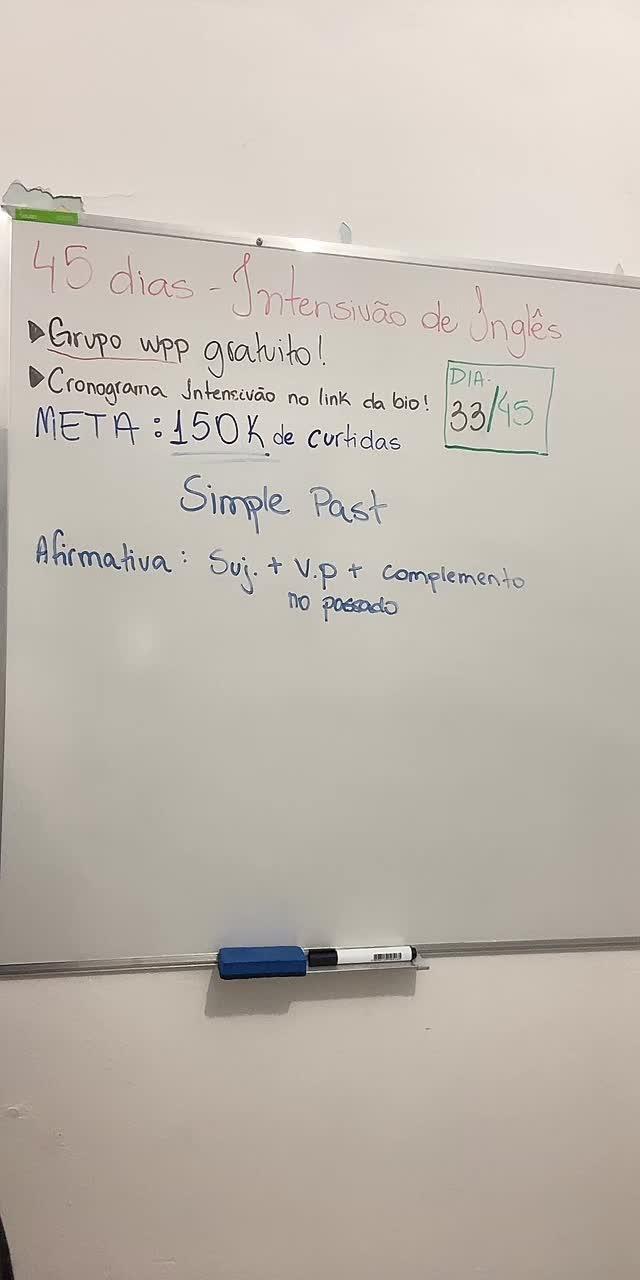 45 dias - Intensivão de Inglês
▶Grupo wpp gratuito!
▶Cronograma Intensivão no link da bio!
DIA:
33/45
META: 150K de curtidas
Simple Past
Afirmativa: Suj. + V.p + complemento
no passado